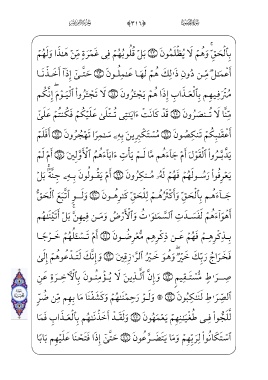 بِٱلۡحَقِّ وَهُمۡ لَا يُظۡلَمُونَ بَلۡ قُلُوبُهُمۡ فِي غَمۡرَةٖ مِّنۡ هَٰذَا وَلَهُمۡ
أَعۡمَٰلٞ مِّن دُونِ ذَٰلِكَ هُمۡ لَهَا عَٰمِلُونَ حَتَّىٰٓ إِذَآ أَخَذۡنَا
مُتۡرَفِيهِم بِٱلۡعَذَابِ إِذَا هُمۡ يَجۡـَٔرُونَ لَا تَجۡـَٔرُواْ ٱلۡيَوۡمَۖ إِنَّكُم
مِّنَّا لَا تُنصَرُونَ قَدۡ كَانَتۡ ءَايَٰتِي تُتۡلَىٰ عَلَيۡكُمۡ فَكُنتُمۡ عَلَىٰٓ
أَعۡقَٰبِكُمۡ تَنكِصُونَ مُسۡتَكۡبِرِينَ بِهِۦ سَٰمِرٗا تَهۡجُرُونَ أَفَلَمۡ
يَدَّبَّرُواْ ٱلۡقَوۡلَ أَمۡ جَآءَهُم مَّا لَمۡ يَأۡتِ ءَابَآءَهُمُ ٱلۡأَوَّلِينَ أَمۡ لَمۡ
يَعۡرِفُواْ رَسُولَهُمۡ فَهُمۡ لَهُۥ مُنكِرُونَ أَمۡ يَقُولُونَ بِهِۦ جِنَّةُۢۚ بَلۡ
جَآءَهُم بِٱلۡحَقِّ وَأَكۡثَرُهُمۡ لِلۡحَقِّ كَٰرِهُونَ وَلَوِ ٱتَّبَعَ ٱلۡحَقُّ
أَهۡوَآءَهُمۡ لَفَسَدَتِ ٱلسَّمَٰوَٰتُ وَٱلۡأَرۡضُ وَمَن فِيهِنَّۚ بَلۡ أَتَيۡنَٰهُم
بِذِكۡرِهِمۡ فَهُمۡ عَن ذِكۡرِهِم مُّعۡرِضُونَ أَمۡ تَسۡـَٔلُهُمۡ خَرۡجٗا
فَخَرَاجُ رَبِّكَ خَيۡرٞۖ وَهُوَ خَيۡرُ ٱلرَّٰزِقِينَ وَإِنَّكَ لَتَدۡعُوهُمۡ إِلَىٰ
صِرَٰطٖ مُّسۡتَقِيمٖ وَإِنَّ ٱلَّذِينَ لَا يُؤۡمِنُونَ بِٱلۡأٓخِرَةِ عَنِ
ٱلصِّرَٰطِ لَنَٰكِبُونَ ۞ وَلَوۡ رَحِمۡنَٰهُمۡ وَكَشَفۡنَا مَا بِهِم مِّن ضُرّٖ
لَّلَجُّواْ فِي طُغۡيَٰنِهِمۡ يَعۡمَهُونَ وَلَقَدۡ أَخَذۡنَٰهُم بِٱلۡعَذَابِ فَمَا
ٱسۡتَكَانُواْ لِرَبِّهِمۡ وَمَا يَتَضَرَّعُونَ حَتَّىٰٓ إِذَا فَتَحۡنَا عَلَيۡهِم بَابٗا